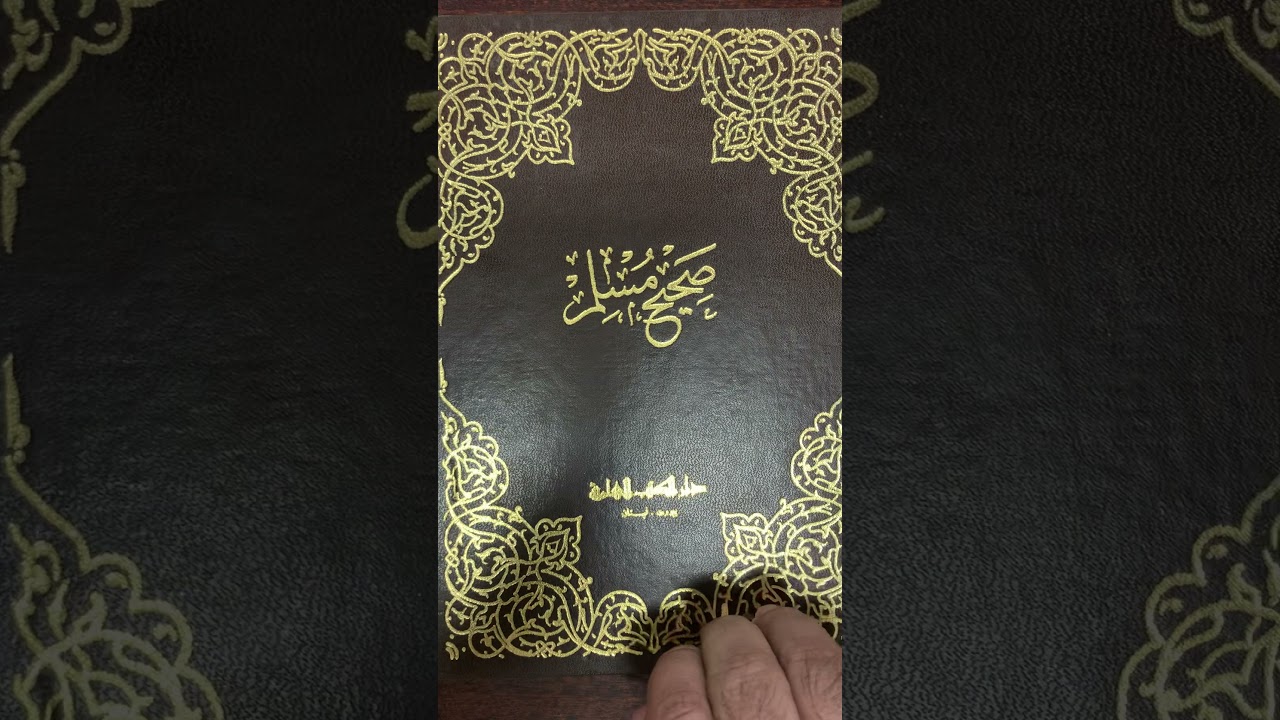 صَحِيحُ مُسْلِم
دار الكتب العلمية
بيروت - لبنان